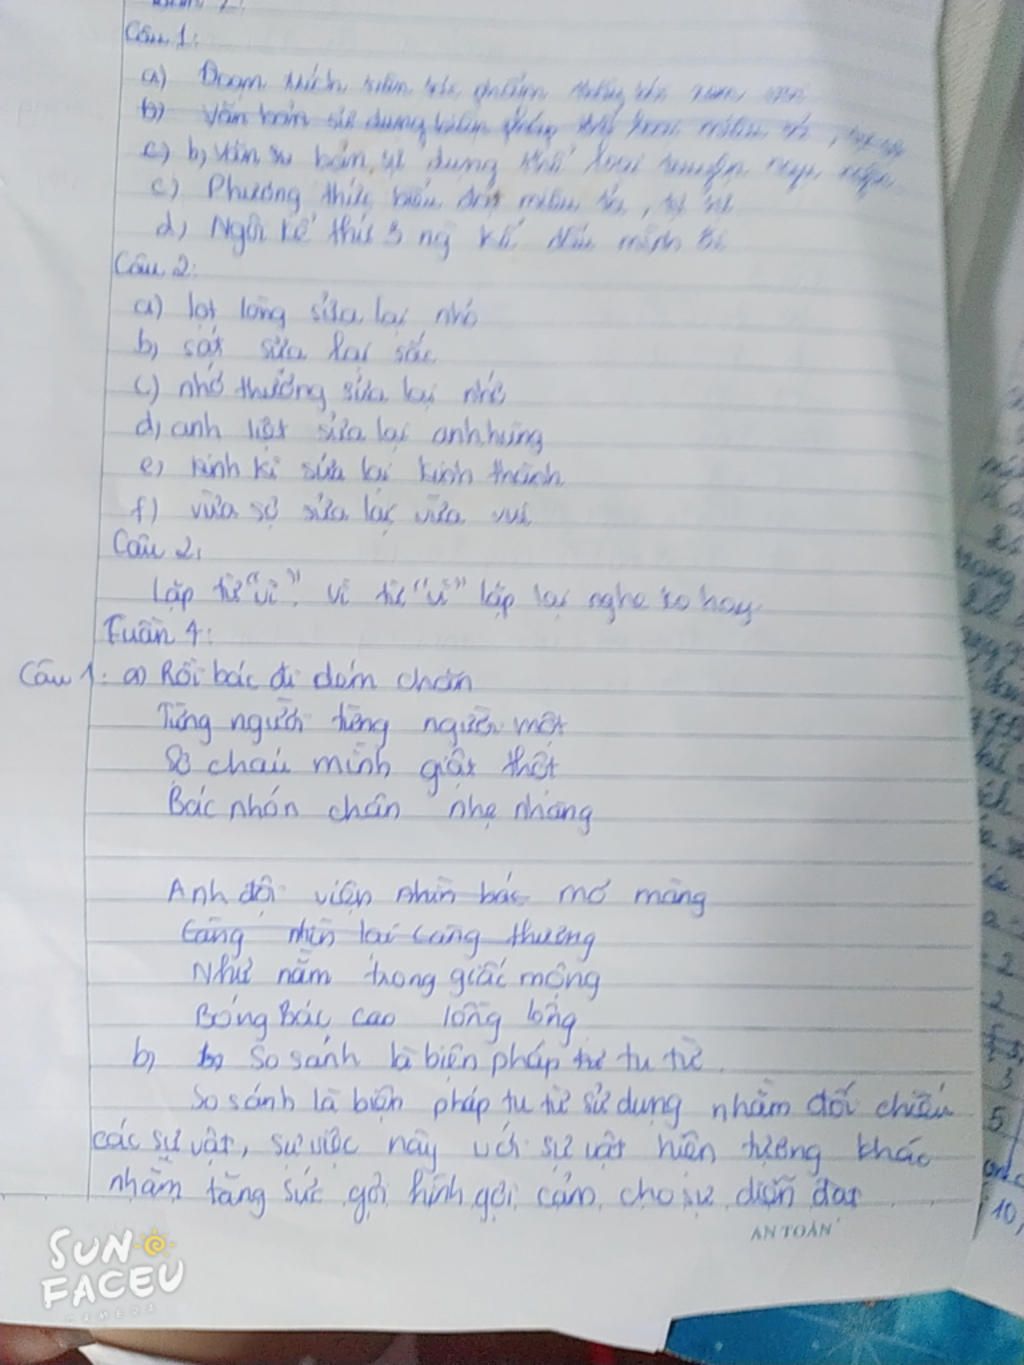 Câu 1:
a) Đoạn trích
b) Văn bản sử dụng
c) b, sử dụng thể loại
c) Phương thức biểu đạt miêu tả, tự sự
d) Ngôi kể thứ 3 ng kể dấu mình đi
Câu 2:
a) lọt lòng sửa lại nhỏ
b) sửa lại sắc
c) nhớ thương sửa lại nhớ
d) anh liệt sửa lại anh hùng
e) kinh kì sửa lại kinh thành
f) vừa sợ sửa lại vừa vui
Câu 2,
Lặp từ "vì". Vì từ "vì" lặp lại nghe ko hay
Tuần 4:
Câu 1: a) Rồi bác đi dém chăn
Từng người từng người một
Sợ cháu mình giật thột
Bác nhón chân nhẹ nhàng
Anh đội viên nhìn bác mơ màng
Càng nhìn lại càng thương
Như nằm trong giấc mộng
Bóng Bác cao lồng lộng
b) So sánh là biện pháp tu từ.
So sánh là biện pháp tu từ sử dụng nhằm đối chiếu
các sự vật, sự việc này với sự vật hiện tượng khác
nhằm tăng sức gợi hình gợi cảm cho sự diễn đạt
AN TOÀN
SUN
FACEU
CAMERA